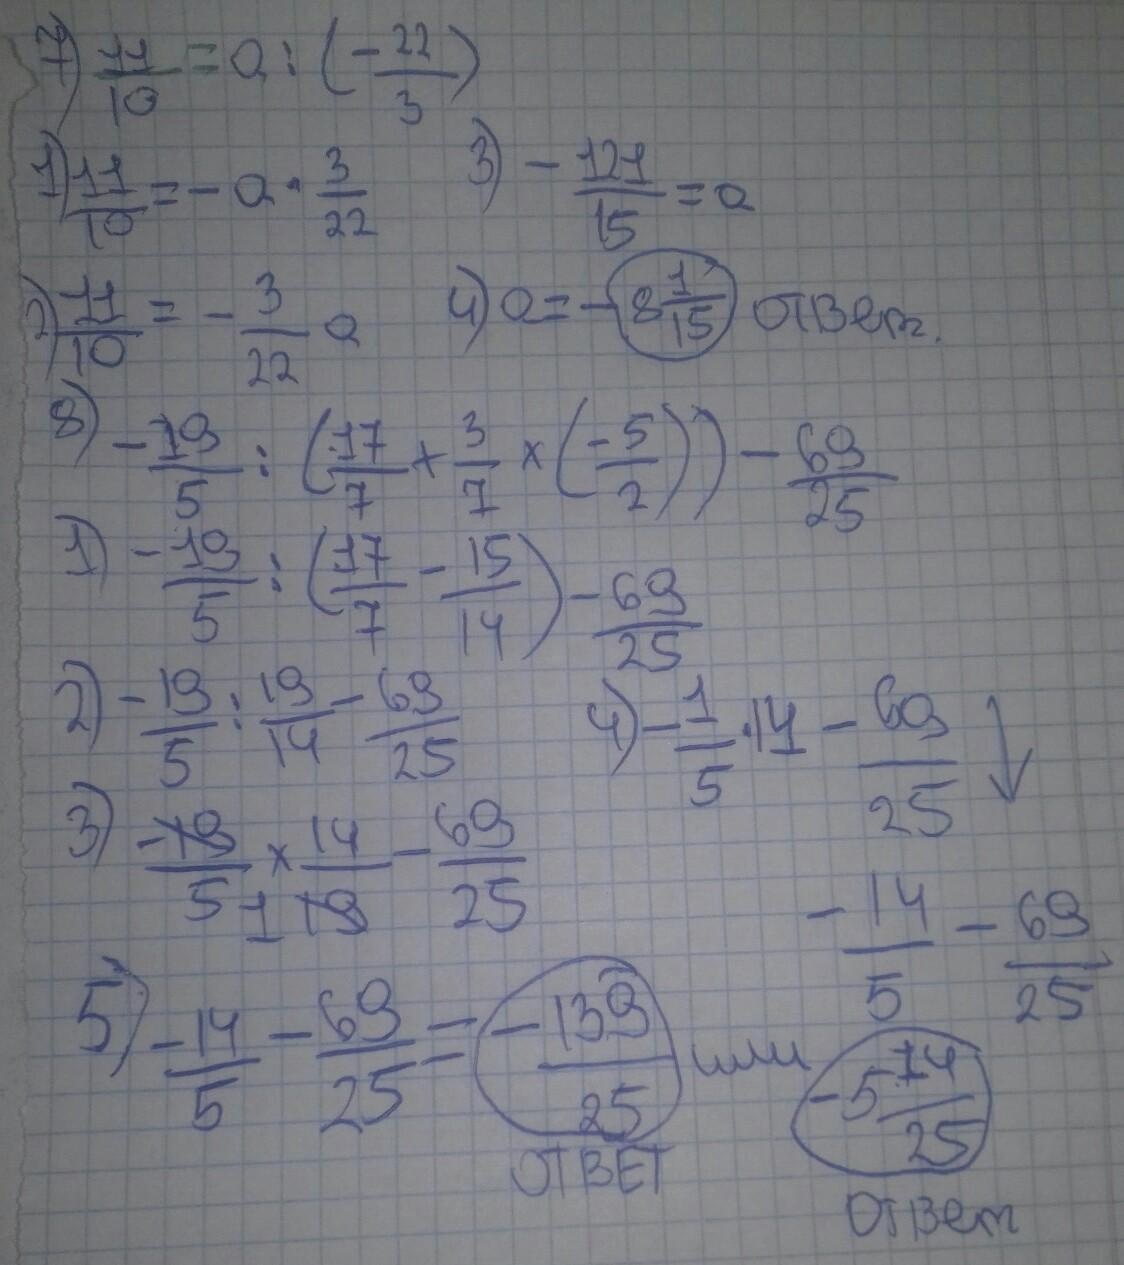 7) 11/10 = a : (-22/3)
1) 11/10 = - a · 3/22
3) - 121/15 = a
2) 11/10 = - 3/22 a
4) a = - 8 1/15 ответ.
8) - 19/5 : (17/7 + 3/7 × (-5/2)) - 69/25
1) - 19/5 : (17/7 - 15/14) - 69/25
2) - 19/5 : 19/14 - 69/25
4) - 1/5 · 14 - 69/25 ↓
3) -19/5 × 14/19 1 - 69/25
- 14/5 - 69/25
5) -14/5 - 69/25 = - 139/25 или -5 14/25
ОТВЕТ
Ответ